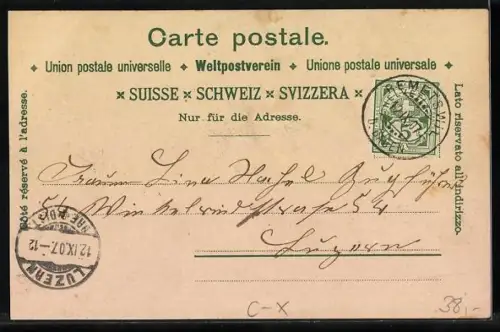 Carte postale.
Union postale universelle ✦ Weltpostverein ✦ Unione postale universale
SUISSE × SCHWEIZ × SVIZZERA
Nur für die Adresse.
Côté réservé à l'adresse.
Lato riservato all'indirizzo.
5
Lina
54 Winkelriedstrasse 54
Luzern
LUZERN
12.IX.07.-12
C-X
38,-